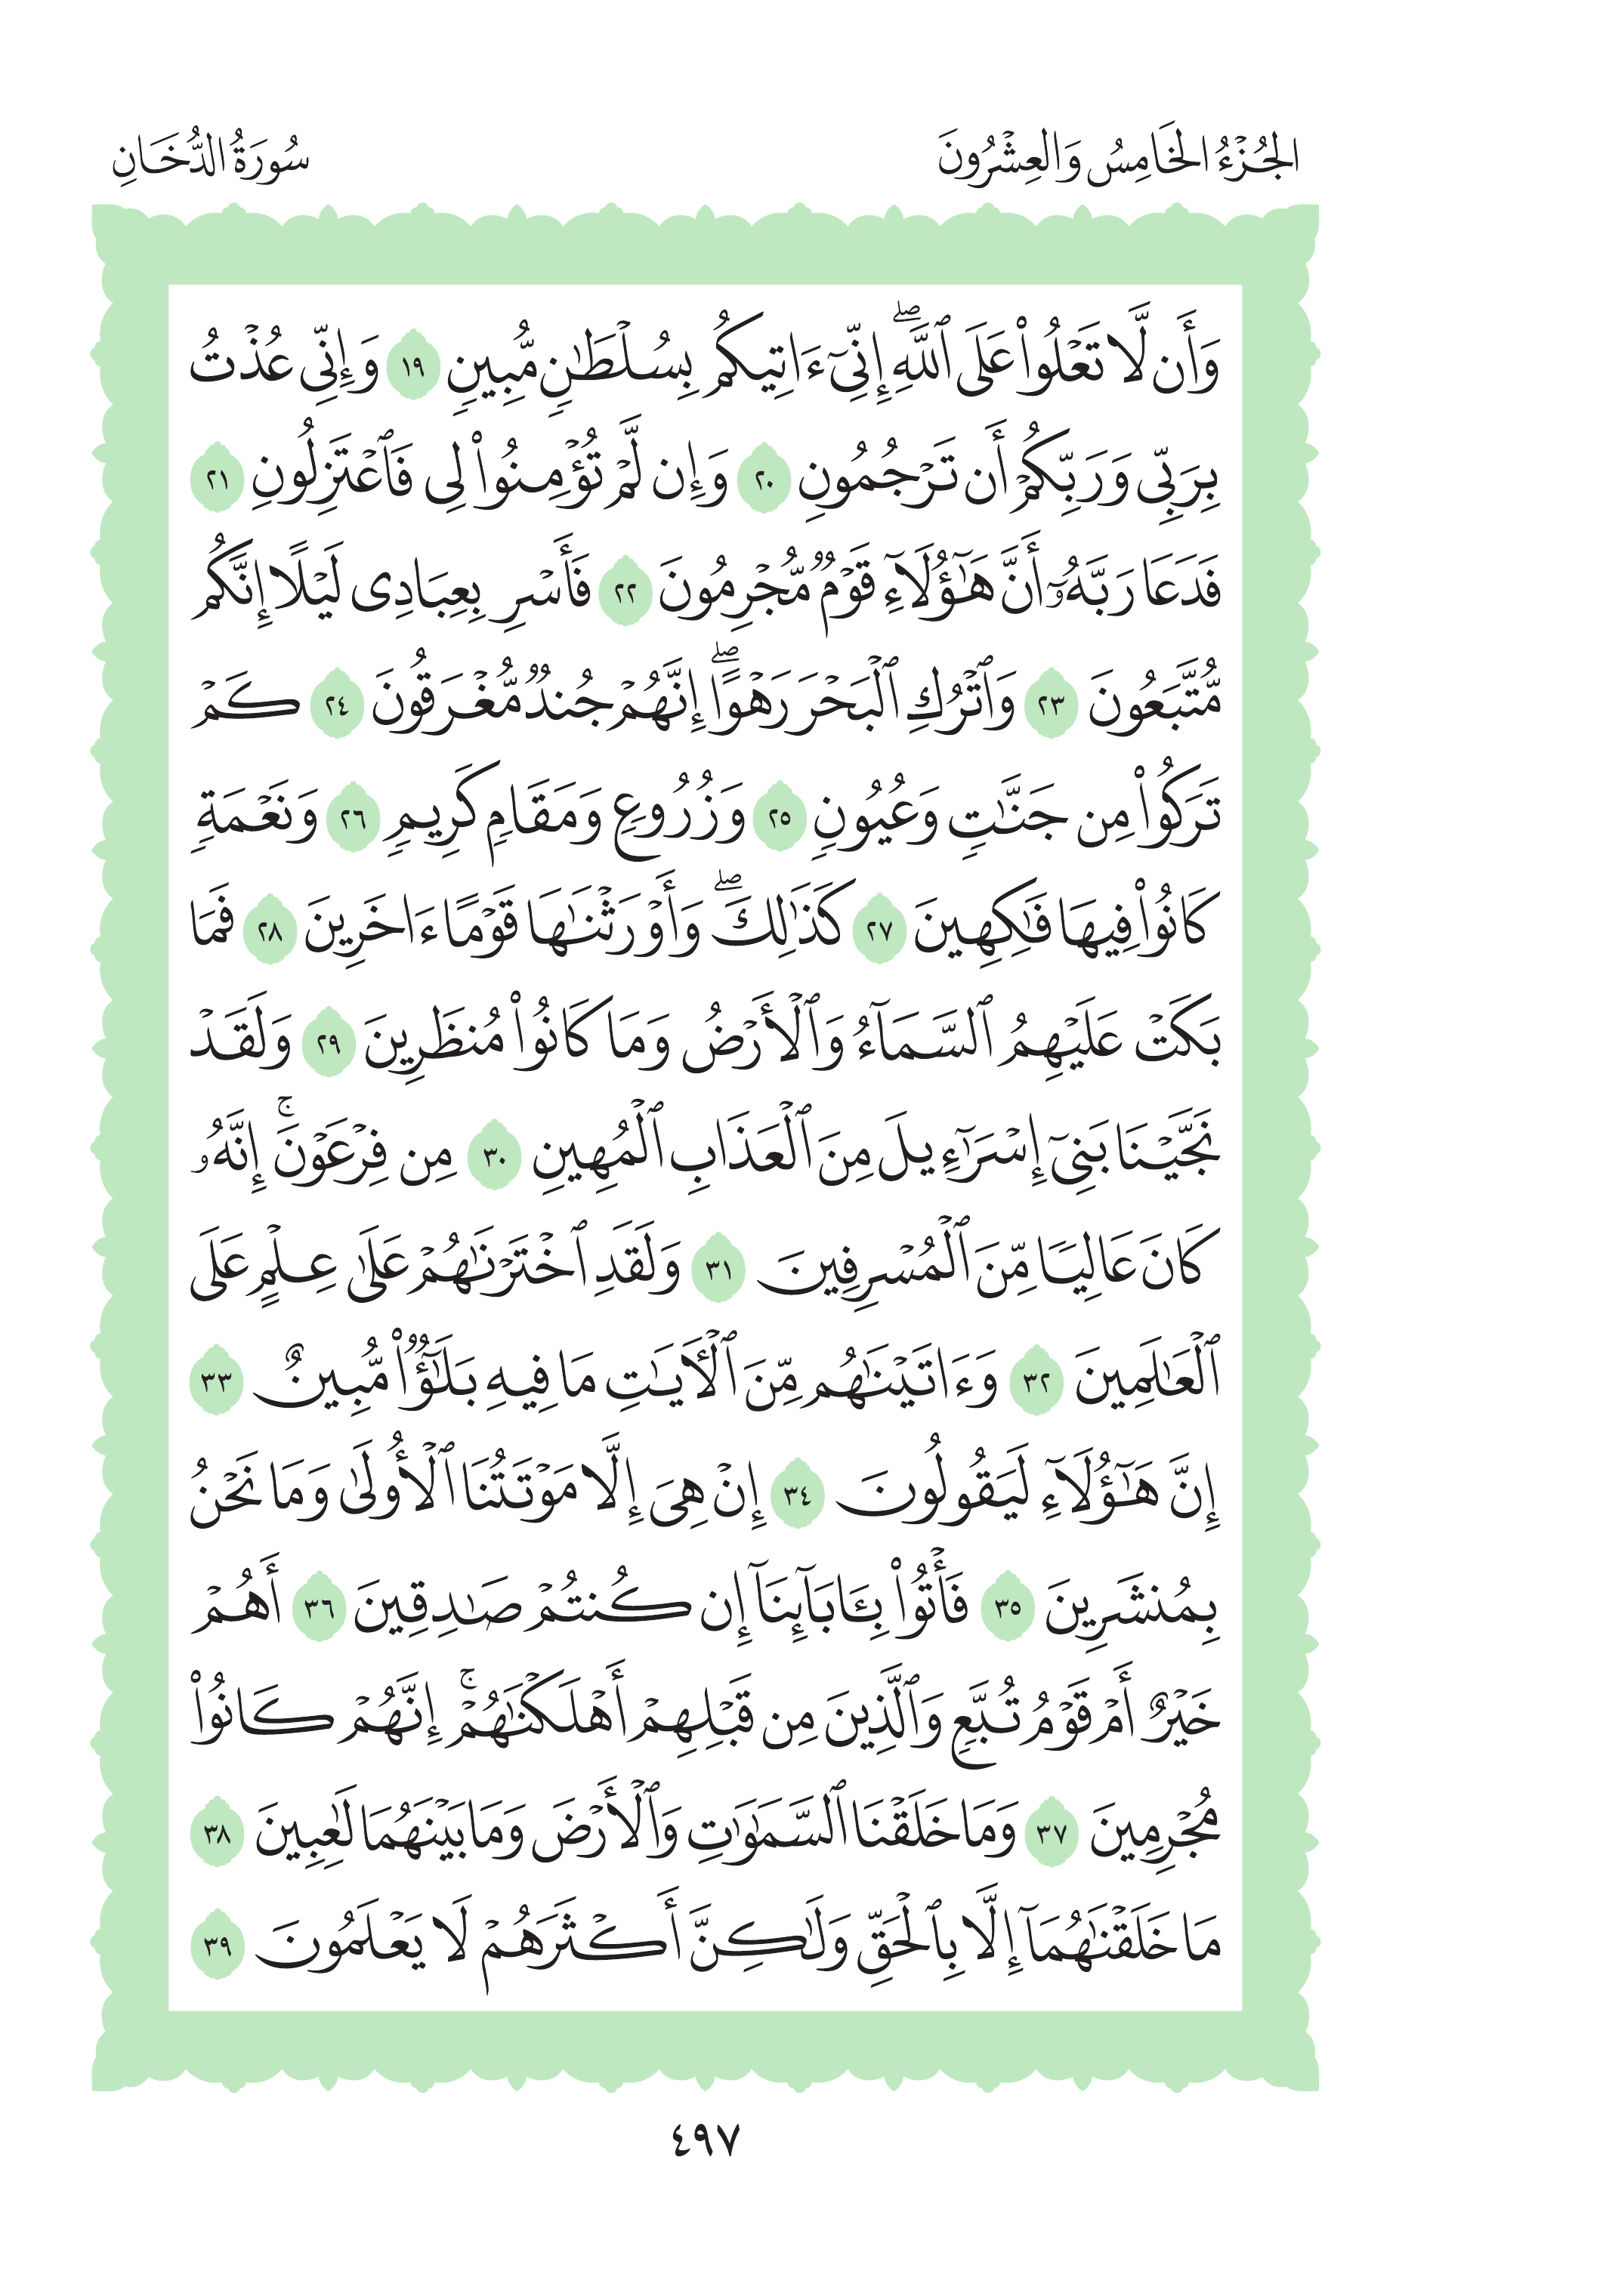 الجُزْءُ الخَامِسُ وَالعِشْرُونَ
سُورَةُ الدُّخَانِ
وَأَن لَّا تَعْلُوا۟ عَلَى ٱللَّهِ ۖ إِنِّىٓ ءَاتِيكُم بِسُلْطَـٰنٍ مُّبِينٍ ١٩ وَإِنِّى عُذْتُ
بِرَبِّى وَرَبِّكُمْ أَن تَرْجُمُونِ ٢٠ وَإِن لَّمْ تُؤْمِنُوا۟ لِى فَٱعْتَزِلُونِ ٢١
فَدَعَا رَبَّهُۥٓ أَنَّ هَـٰٓؤُلَآءِ قَوْمٌ مُّجْرِمُونَ ٢٢ فَأَسْرِ بِعِبَادِى لَيْلًا إِنَّكُم
مُّتَّبَعُونَ ٢٣ وَٱتْرُكِ ٱلْبَحْرَ رَهْوًا ۖ إِنَّهُمْ جُندٌ مُّغْرَقُونَ ٢٤ كَمْ
تَرَكُوا۟ مِن جَنَّـٰتٍ وَعُيُونٍ ٢٥ وَزُرُوعٍ وَمَقَامٍ كَرِيمٍ ٢٦ وَنَعْمَةٍ
كَانُوا۟ فِيهَا فَـٰكِهِينَ ٢٧ كَذَٰلِكَ ۖ وَأَوْرَثْنَـٰهَا قَوْمًا ءَاخَرِينَ ٢٨ فَمَا
بَكَتْ عَلَيْهِمُ ٱلسَّمَآءُ وَٱلْأَرْضُ وَمَا كَانُوا۟ مُنظَرِينَ ٢٩ وَلَقَدْ
نَجَّيْنَا بَنِىٓ إِسْرَٰٓءِيلَ مِنَ ٱلْعَذَابِ ٱلْمُهِينِ ٣٠ مِن فِرْعَوْنَ ۚ إِنَّهُۥ
كَانَ عَالِيًا مِّنَ ٱلْمُسْرِفِينَ ٣١ وَلَقَدِ ٱخْتَرْنَـٰهُمْ عَلَىٰ عِلْمٍ عَلَى
ٱلْعَـٰلَمِينَ ٣٢ وَءَاتَيْنَـٰهُم مِّنَ ٱلْـَٔايَـٰتِ مَا فِيهِ بَلَـٰٓؤٌا۟ مُّبِينٌ ٣٣
إِنَّ هَـٰٓؤُلَآءِ لَيَقُولُونَ ٣٤ إِنْ هِىَ إِلَّا مَوْتَتُنَا ٱلْأُولَىٰ وَمَا نَحْنُ
بِمُنشَرِينَ ٣٥ فَأْتُوا۟ بِـَٔابَآئِنَآ إِن كُنتُمْ صَـٰدِقِينَ ٣٦ أَهُمْ
خَيْرٌ أَمْ قَوْمُ تُبَّعٍ وَٱلَّذِينَ مِن قَبْلِهِمْ أَهْلَكْنَـٰهُمْ ۚ إِنَّهُمْ كَانُوا۟
مُجْرِمِينَ ٣٧ وَمَا خَلَقْنَا ٱلسَّمَـٰوَٰتِ وَٱلْأَرْضَ وَمَا بَيْنَهُمَا لَـٰعِبِينَ ٣٨
مَا خَلَقْنَـٰهُمَآ إِلَّا بِٱلْحَقِّ وَلَـٰكِنَّ أَكْثَرَهُمْ لَا يَعْلَمُونَ ٣٩
٤٩٧